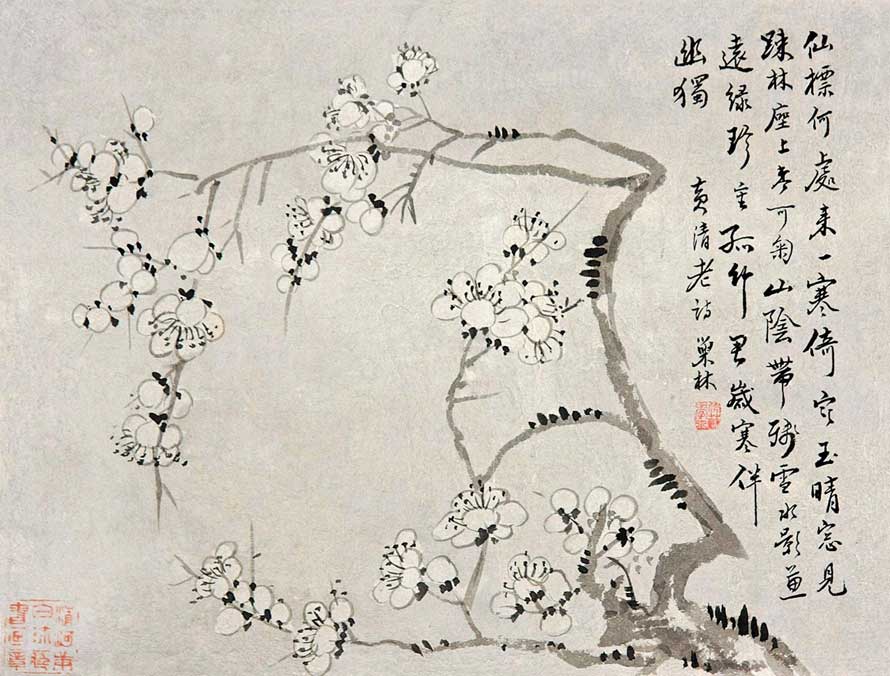 仙標何處来一寒倚空玉晴窓見
踈林座上春可匊山陰帶殘雪水影兼
遠緑珍重孤竹君歲寒伴
幽獨
黄清老詩 巢林